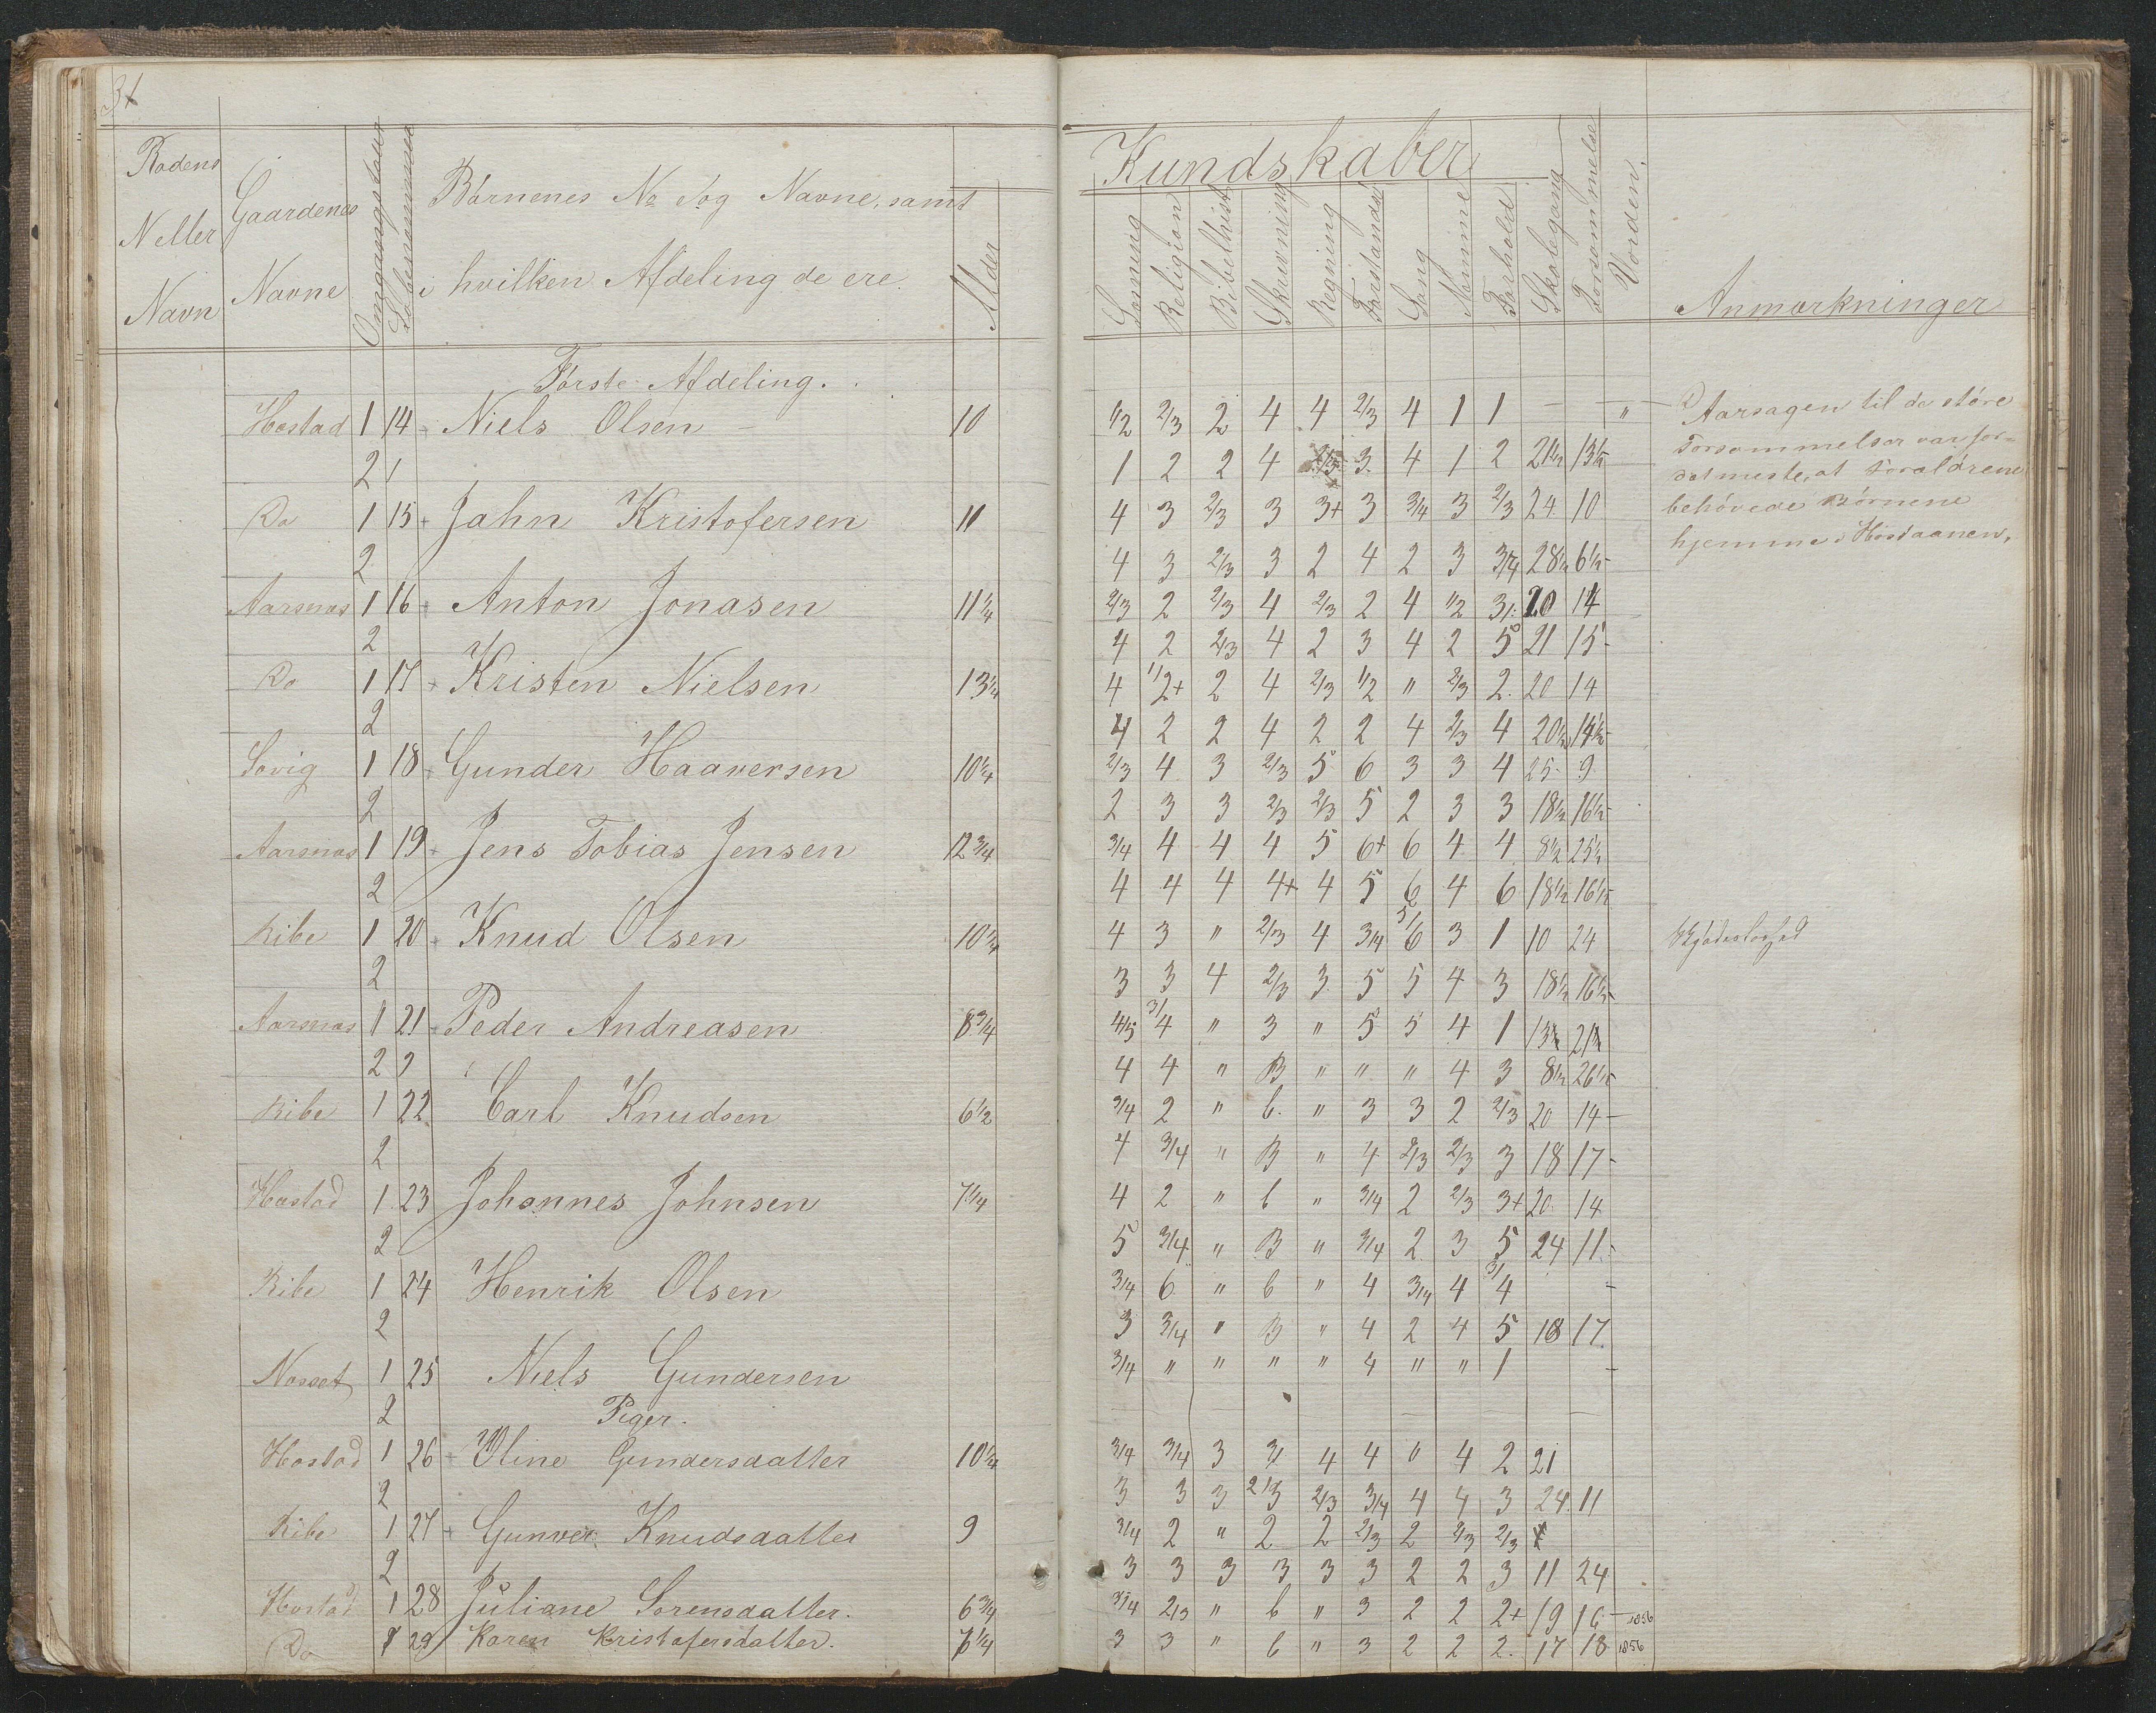 31
Rodens
N eller
Navn
Gaardenes
Navne
Omgangstour
Løbenummer
Børnenes No og Navne, samt
i hvilken Afdeling de ere.
Alder
Kundskaber
Læsning
Religion
Bibelhist
Skrevning
Regning
Forstands
Sang
Nemme
Forhold
Skolegang
Forsømmelse
Verden.
Anmærkninger
Første Afdeling.
Hæstad 1 14 Niels Olsen 10 1/2 2/3 2 4 4 2/3 4 1 1 — — "
2 1 2 2 4 3 4 1 2 21 1/2 13 1/2
Do 1 15 + Jahn Kristofersen 11 4 3 2/3 3 3+ 3 3/4 3 2/3 24 10
2 4 3 2/3 3 2 4 2 3 3/4 28 1/2 6 1/2
Aarsnæs 1 16 + Anton Jonasen 11 1/4 2/3 2 2/3 4 2/3 2 4 1/2 3/ 20 14
2 4 2 2/3 4 2 3 4 2 5 21 15
Do 1 17 + Kristen Nielsen 13 1/4 4 1/2+ 2 4 2/3 1/2 " 2/3 2. 20 14
2 4 2 2 4 2 2 4 2/3 4 20 1/2 14 1/2
Søvig 1 18 + Gunder Haaversen 10 1/4 2/3 4 3 2/3 5 6 3 3 4 25 9
2 2 3 3 2/3 2/3 5 2 3 3 18 1/2 16 1/2
Aarsnæs 1 19 + Jens Tobias Jensen 12 3/4 3/4 4 4 4 5 6+ 6 4 4 8 1/2 25 1/2
2 4 4 4 4+ 4 5 6 4 6 18 1/2 16 1/2
Ribe 1 20 + Knud Olsen 10 1/4 4 3 " 2/3 4 3/4 5/6 3 1 10 24
2 3 3 4 2/3 3 5 5 4 3 18 1/2 16 1/2
Aarsnæs 1 21 + Peder Andreasen 8 3/4 4/5 3/4 " 3 " 5 5 4 1 13 1/2 21 1/2
2 4 4 " B " " " 4 3 8 1/2 26 1/2
Ribe 1 22 Carl Knudsen 6 1/2 3/4 2 " b. " 3 3 2 2/3 20 14
2 4 3/4 " B " 4 2/3 2/3 3 18 17
Hæstad 1 23 Johannes Johnsen 7 1/4 4 2 " b " 3/4 2 2/3 3+ 20 14
2 5 3/4 " B " 3/4 2 3 5 24 11
Ribe 1 24 Henrik Olsen 3/4 6 " b " 4 3/4 4 3/4
2 3 3/4 " B " 4 2 4 5 18 17
Nøsset 1 25 Niels Gundersen 3/4 " " " " 4 " " 1
2
Piger.
Hæstad 1 26 + Oline Gundersdatter 10 1/4 3/4 3/4 3 3/ 4 4 0 4 2 21
2 3 3 3 2/3 2/3 3/4 4 4 3 24 11
Ribe 1 27 + Gunver Knudsdatter 9 3/4 2 " 2 2 2/3 2 2/3 2/3
2 3 3 3 3 3 3 2 2 3 11 24
Hæstad 1 28 Juliane Sørensdatter. 6 3/4 3/4 2/3 " b " 3 2 2 2+ 19 16 1856
Do 1 29 Karen Kristofersdatter. 7 1/4 3 3 " b " 3 2 2 2. 17 18 1856
Aarsagen til de støre
Forsømmelser var for
det meste, at Forældrene
behøvede Børnene
hjemme i Høstaanen,